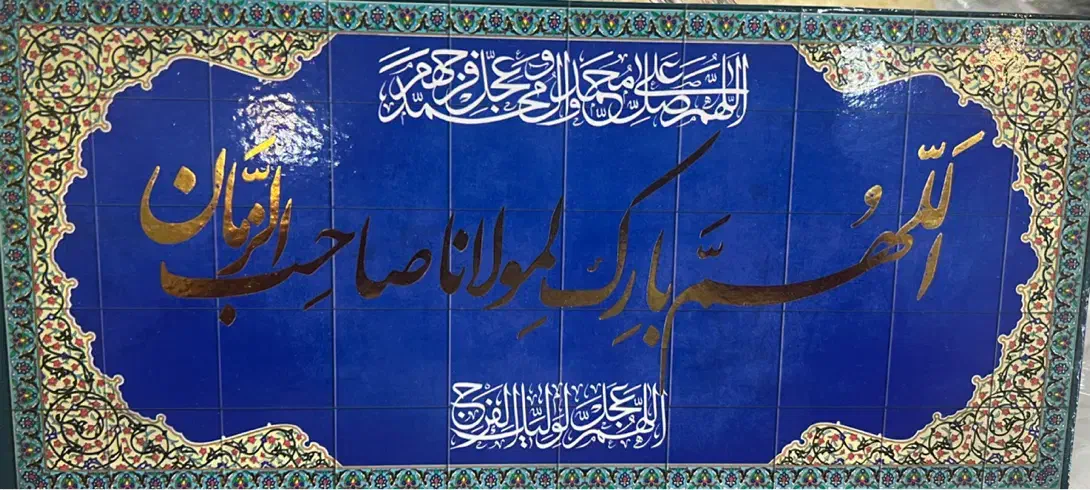 اللهم صل علی محمد و آل محمد و عجل فرجهم
اَللّهُمَّ بارِک لِمولانا صاحِب الزَّمان
اللهم عجل لولیک الفرج